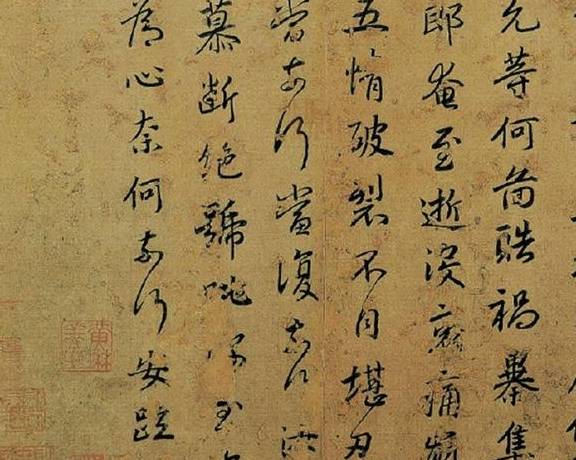 允等何啚酷禍暴集
郎奄至逝沒哀痛
五情破裂不自堪忍
當奈何當復奈何
慕斷絕號咷深至
為心奈何奈何安